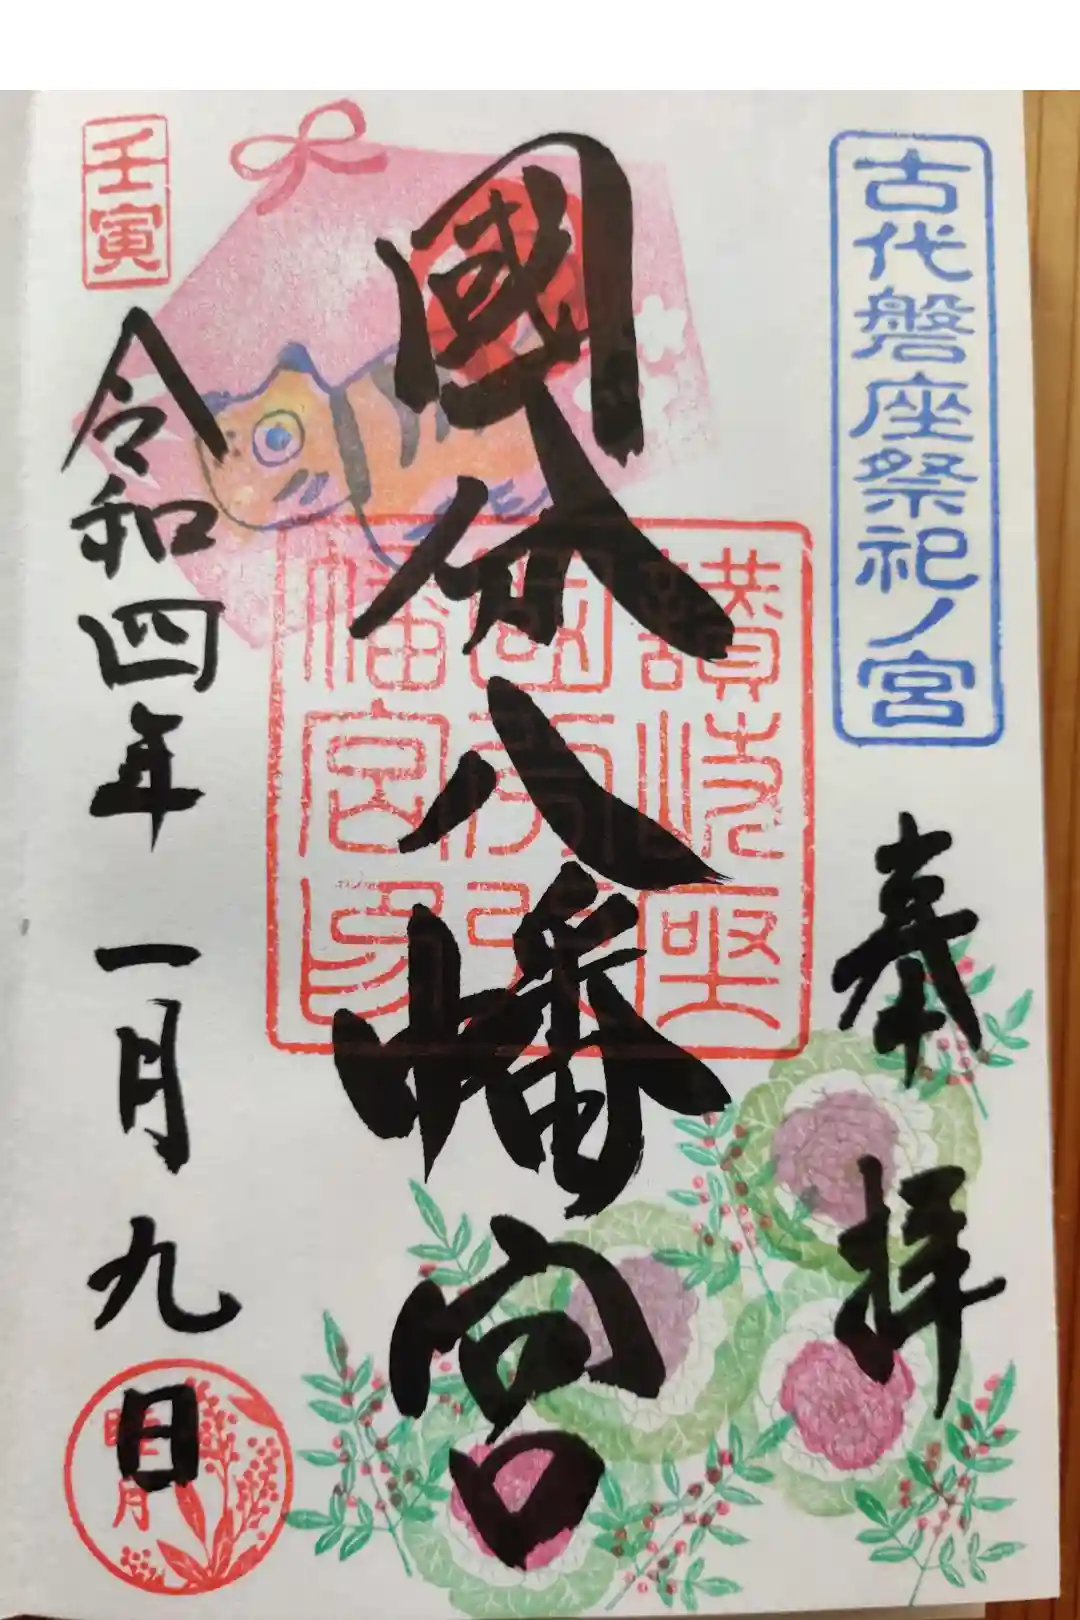 古代磐座祭祀ノ宮
奉拝
國分八幡宮
讃岐座
国国分八
幡宮印
壬寅
令和四年一月九日
睦月